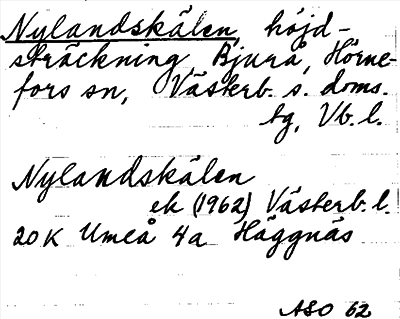 Nylandskälen, höjd-
sträckning Bjurå, Hörne-
fors sn, Västerb. s. doms.
tg, Vb. l.
Nylandskälen
ek (1962) Västerb. l.
20K Umeå 4a Häggnäs
ASO 62